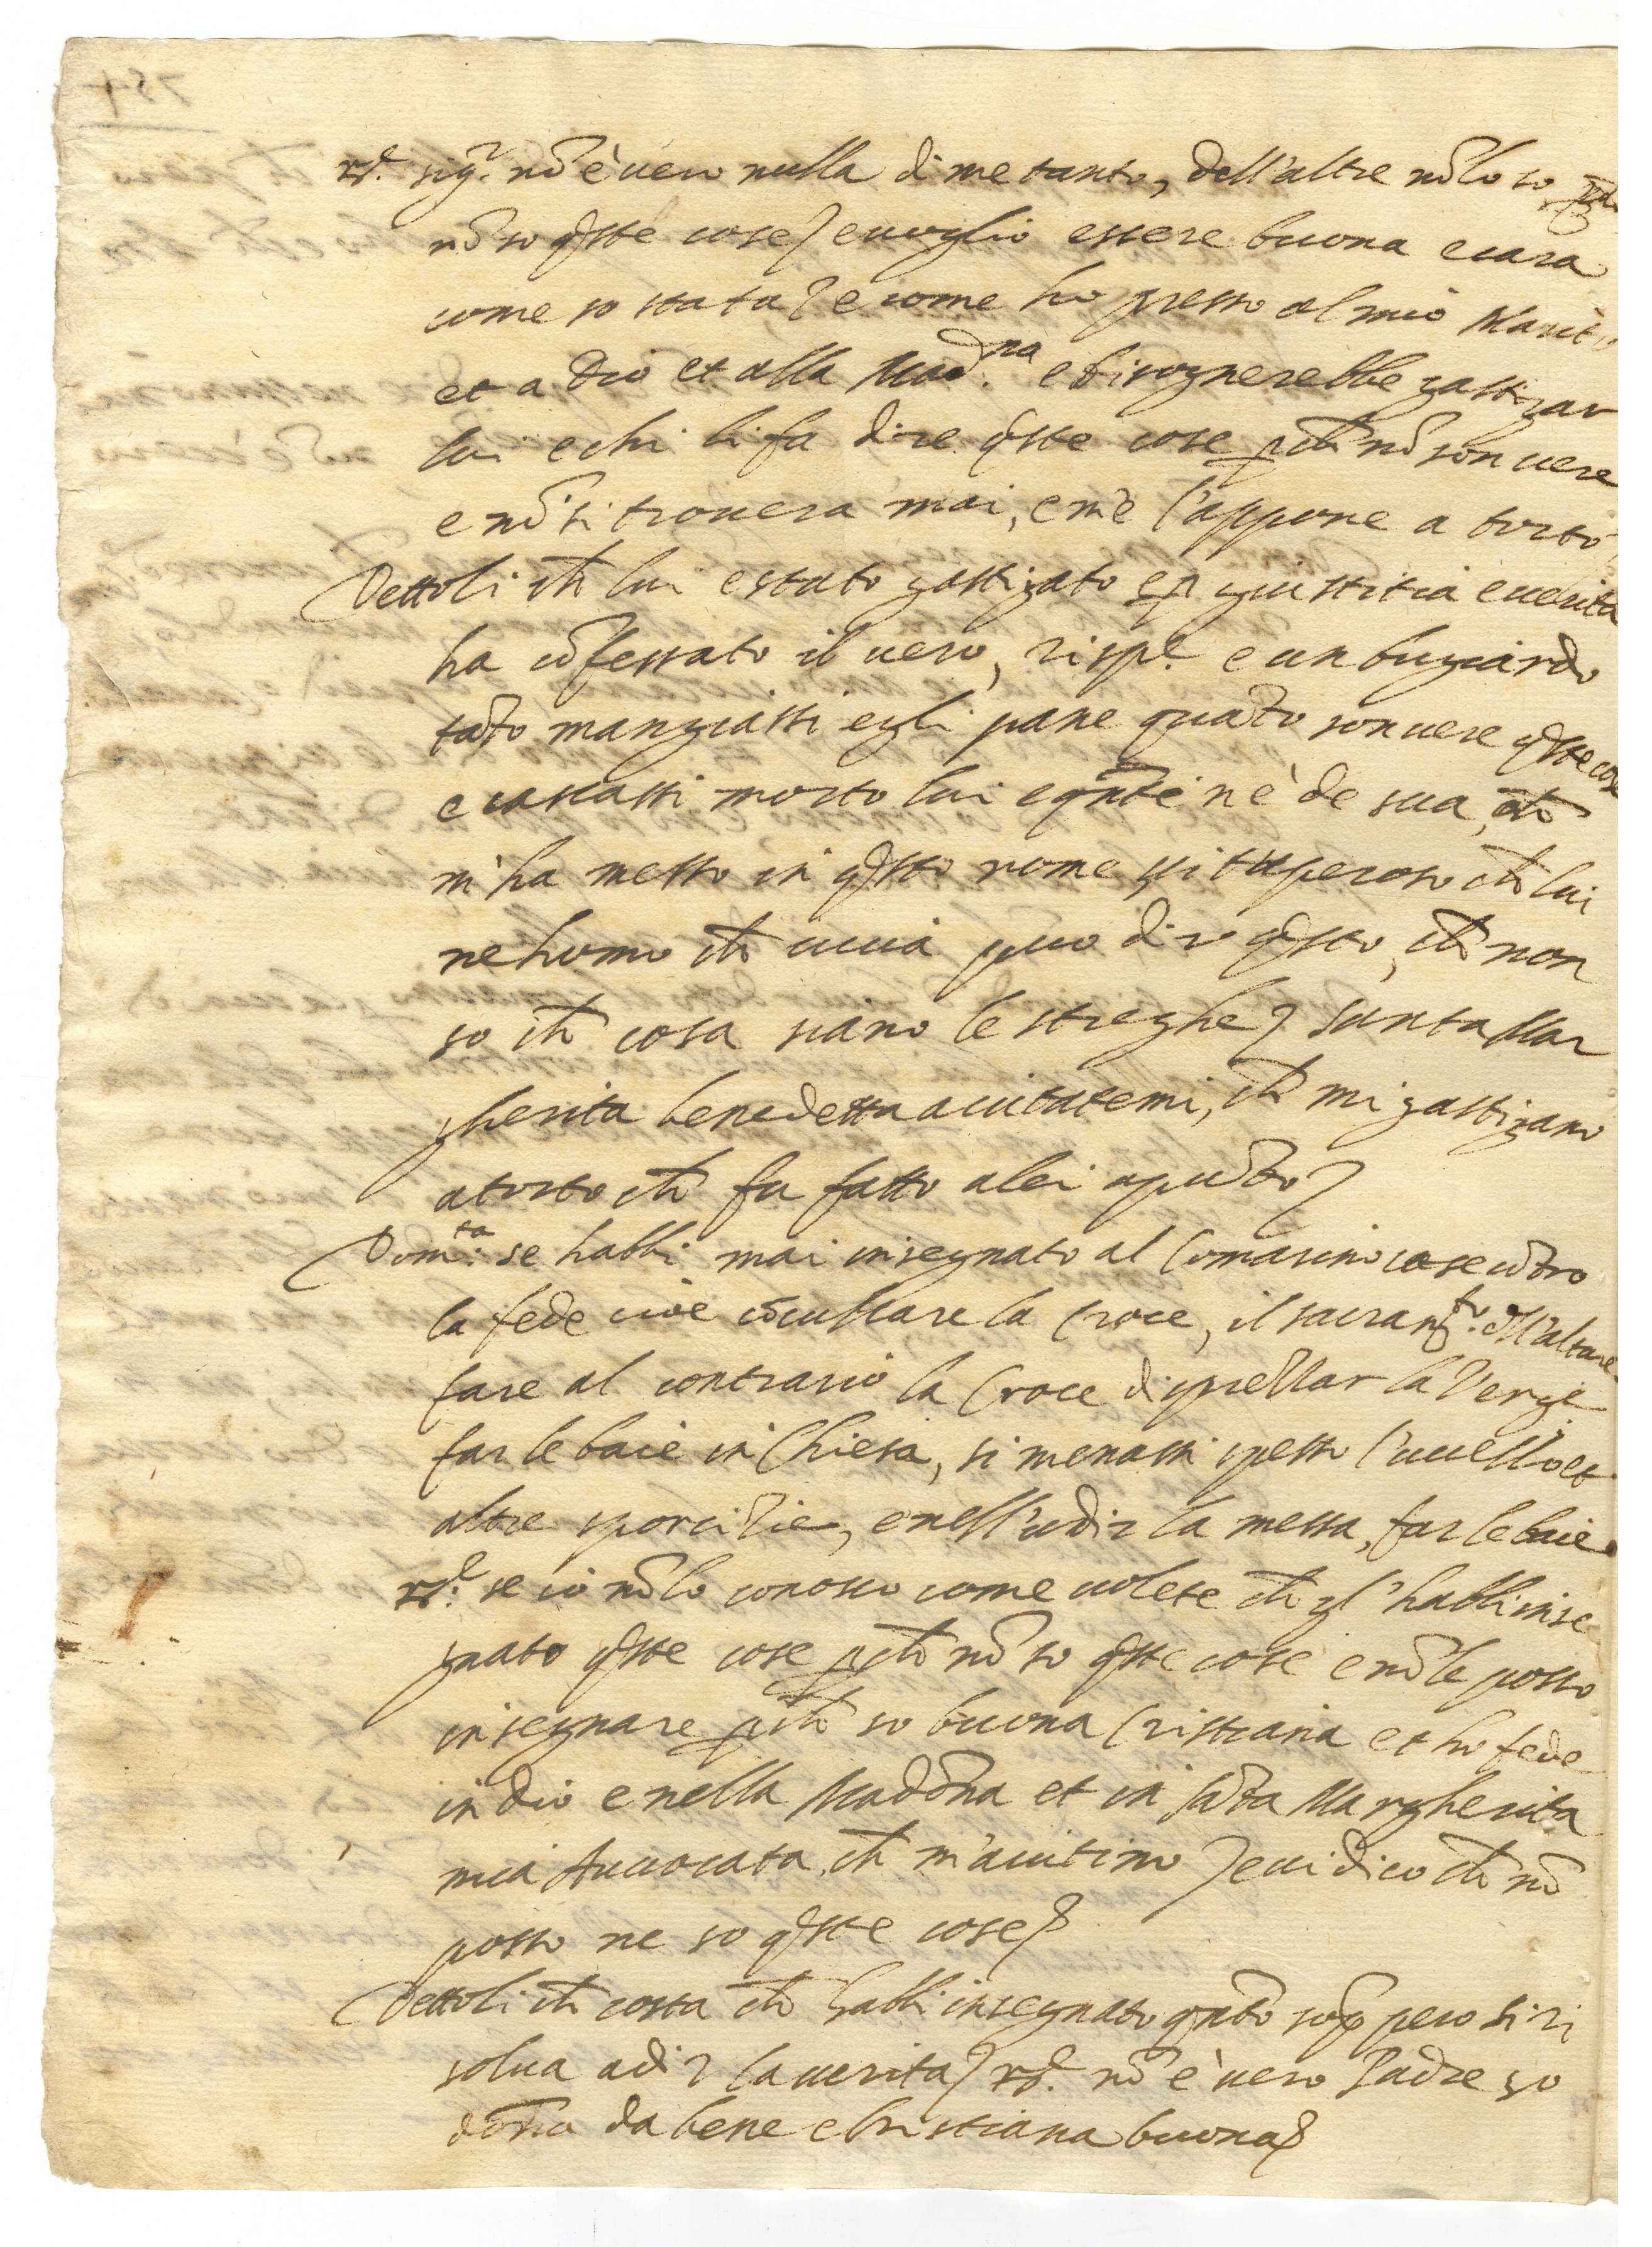 Rs.e sig.r nõ è vero nulla di me tanto, dell'altre nõ lo so
nõ so q̃ste cose / e voglio essere buona e cara
come so stata / e come ho presso al mio Marito
et a Dio et alla Mad.na e bisognerebbe gastigar
lui e chi li fa dire q̃ste cose p̱ch̃ nõ son vere
e nõ si trovera mai, e m'è l'appone a torto
Dettoli ch̃ lui e stato gastigato e p̱ giustitia e verita
ha cõfessato il vero, risp.e e un bugiardo
tãto mangiassi egli pane quãto son vere q̃ste cose
e cascassi morto lui e q̃nti n'è de sua, ch̃
m'ha messo in q̃sto nome vituperoso ch̃ lui
ne homo ch̃ viva puo dir q̃sto, ch̃ non
so ch̃ cosa siano le streghe / Santa Mar
gherita benedetta aiutatemi, ch̃ mi gastigano
a torto ch̃ fu fatto a lei apũto /
Dom.ta se habbi mai insegnato al Comasino cose cõtro
la fede cioè cõculcare la Croce, il sacram.to dell'altare
fare al contrario la Croce disprezzar la Verge
far le baie in Chiesa, si menassi spesso l'uccello et
altre sporcitie, e nell'udir la messa, far le baie.
Rs.e se io nõ lo conosco come volete ch̃ gl'habbi inse
gnato q̃ste cose p̱ch̃ nõ so q̃ste cose e nõ le posso
insegnare p̱ch̃ so buona Cristiana et ho fede
in dio e nella Madõna et in sãta Margherita
mia Avvocata, ch̃ m'aiutino / e vi dico ch̃ nõ
posso ne so q̃ste cose /
Dettoli ch̃ costa ch̃ habbi insegnato q̃nto sop̱ pero si ri
solva a dir la verita / Rs.e nõ è vero Padre so
dõna da bene e Christiana buona /